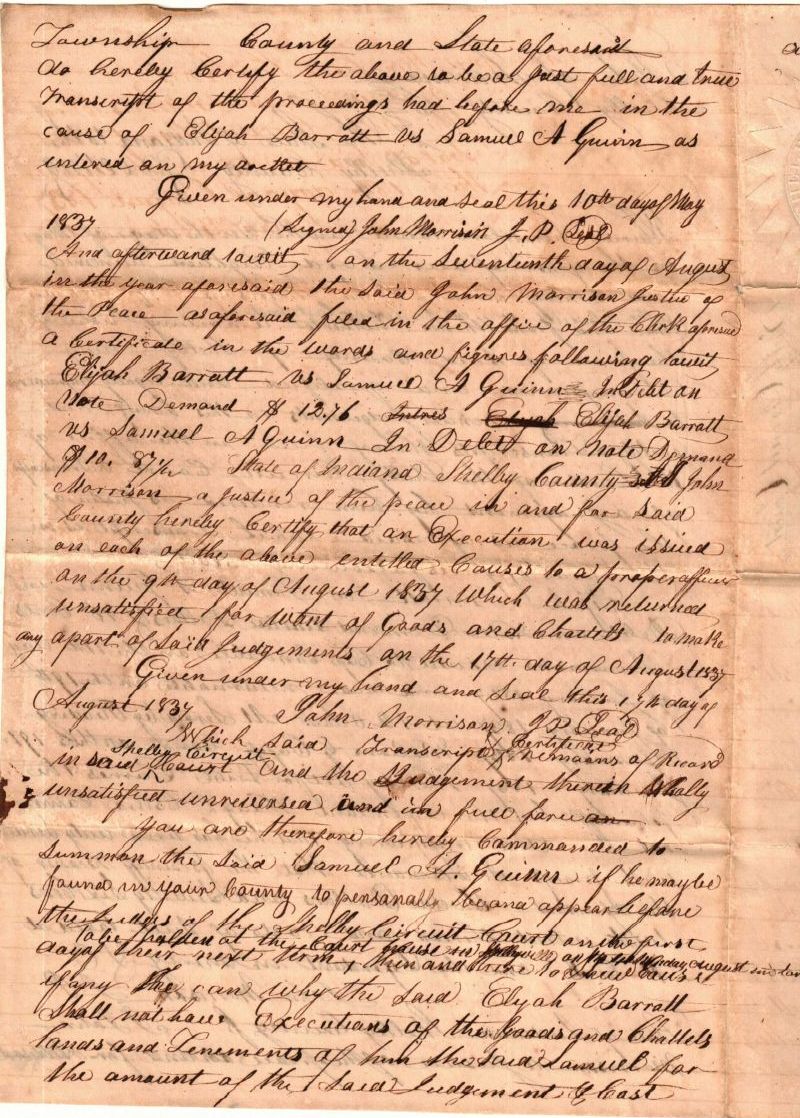 Township County and State aforesaid
do hereby Certify the above to be a just full and true
Transcript of the proceedings had before me in the
cause of Elijah Barratt vs Samuel A Guinn as
entered on my docket
Given under my hand and seal this 10th day of May
1837 (Signed) John Morrison J. P. Seal
And afterward towit, on the Seventeenth day of August
in the year aforesaid the said John Morrison Justice of
the Peace as aforesaid filed in the office of the Clerk aforesaid
a Certificate in the words and figures following towit
Elijah Barratt vs Samuel A Guinn In Debt on
Note Demand $ 12.76 Elijah Elijah Barratt
vs Samuel A Guinn In Debt on Note Demand
$10. 87½ State of Indiana Shelby County John
Morrison a Justice of the peace in and for said
County hereby Certify that an Execution was issued
on each of the above entitled Causes to a proper officer
on the 9th day of August 1837 which was returned
unsatisfied for want of Goods and Chattels to make
any apart of said Judgements on the 17th day of August 1837
Given under my hand and Seal this 17th day of
August 1837 John Morrison JP Seal
Which said Transcript & Certificate remains of Record
in said Shelby Circuit Court and the Judgement therein wholly
unsatisfied unreversed and in full force an
You are therefore hereby Commanded to
summon the said Samuel A. Guinn if he may be
found in your County to personally be and appear before
the Judges of the Shelby Circuit Court on the first
to be holden at the Court house in Shelbyville on Monday August
day of their next term, then and there to Shew Cause
if any he can why the said Elijah Barratt
Shall not have Executions of the Goods and Chattels
lands and Tenements of him the said Samuel for
the amount of the said Judgement & Cost